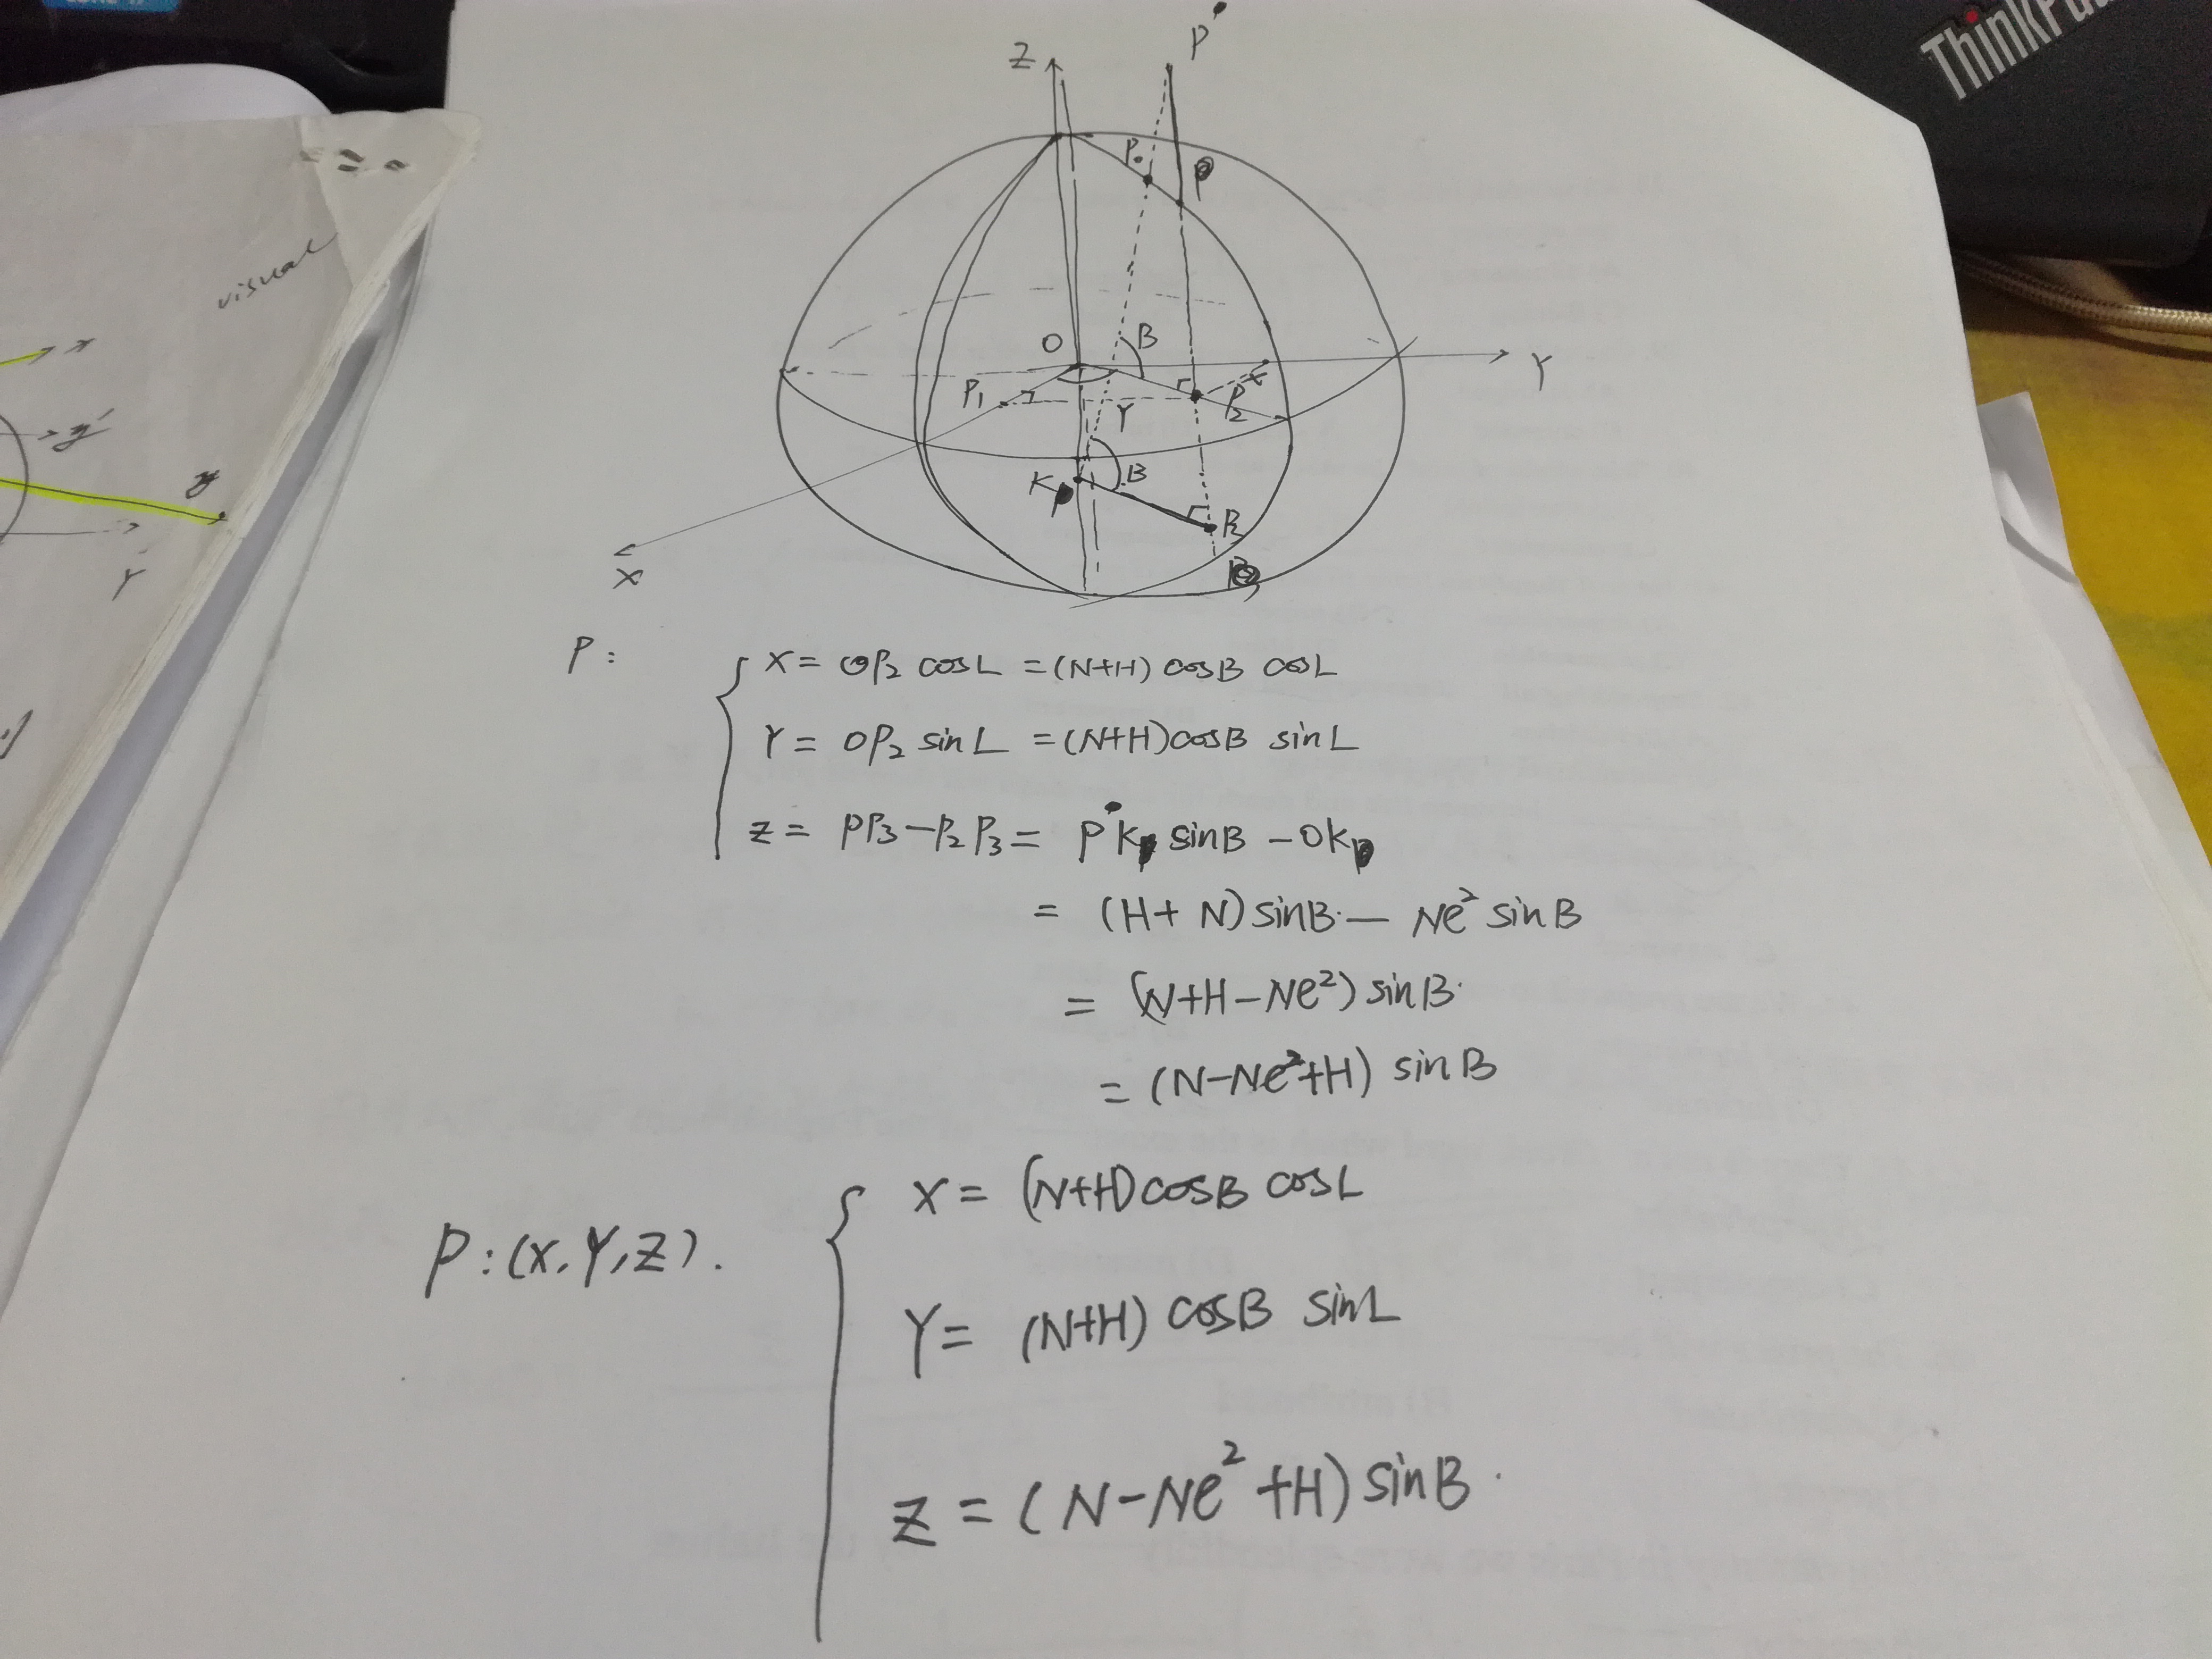 ThinkPa
visual
x
y'
y
Y
Z
P
P.
O
B
Y
P₁
Y
P₂
x
B
K
P₃
X
P :
X = OP₂ cosL = (N+H) cosB cosL
Y = OP₂ sinL = (N+H)cosB sinL
Z = PP₃-P₂P₃ = PKp sinB - OKp
= (H+N) sinB - Ne² sinB
= (N+H-Ne²) sinB
= (N-Ne²+H) sinB
P:(X,Y,Z).
X = (N+H)cosB cosL
Y = (N+H) cosB sinL
Z = (N-Ne²+H) sinB.